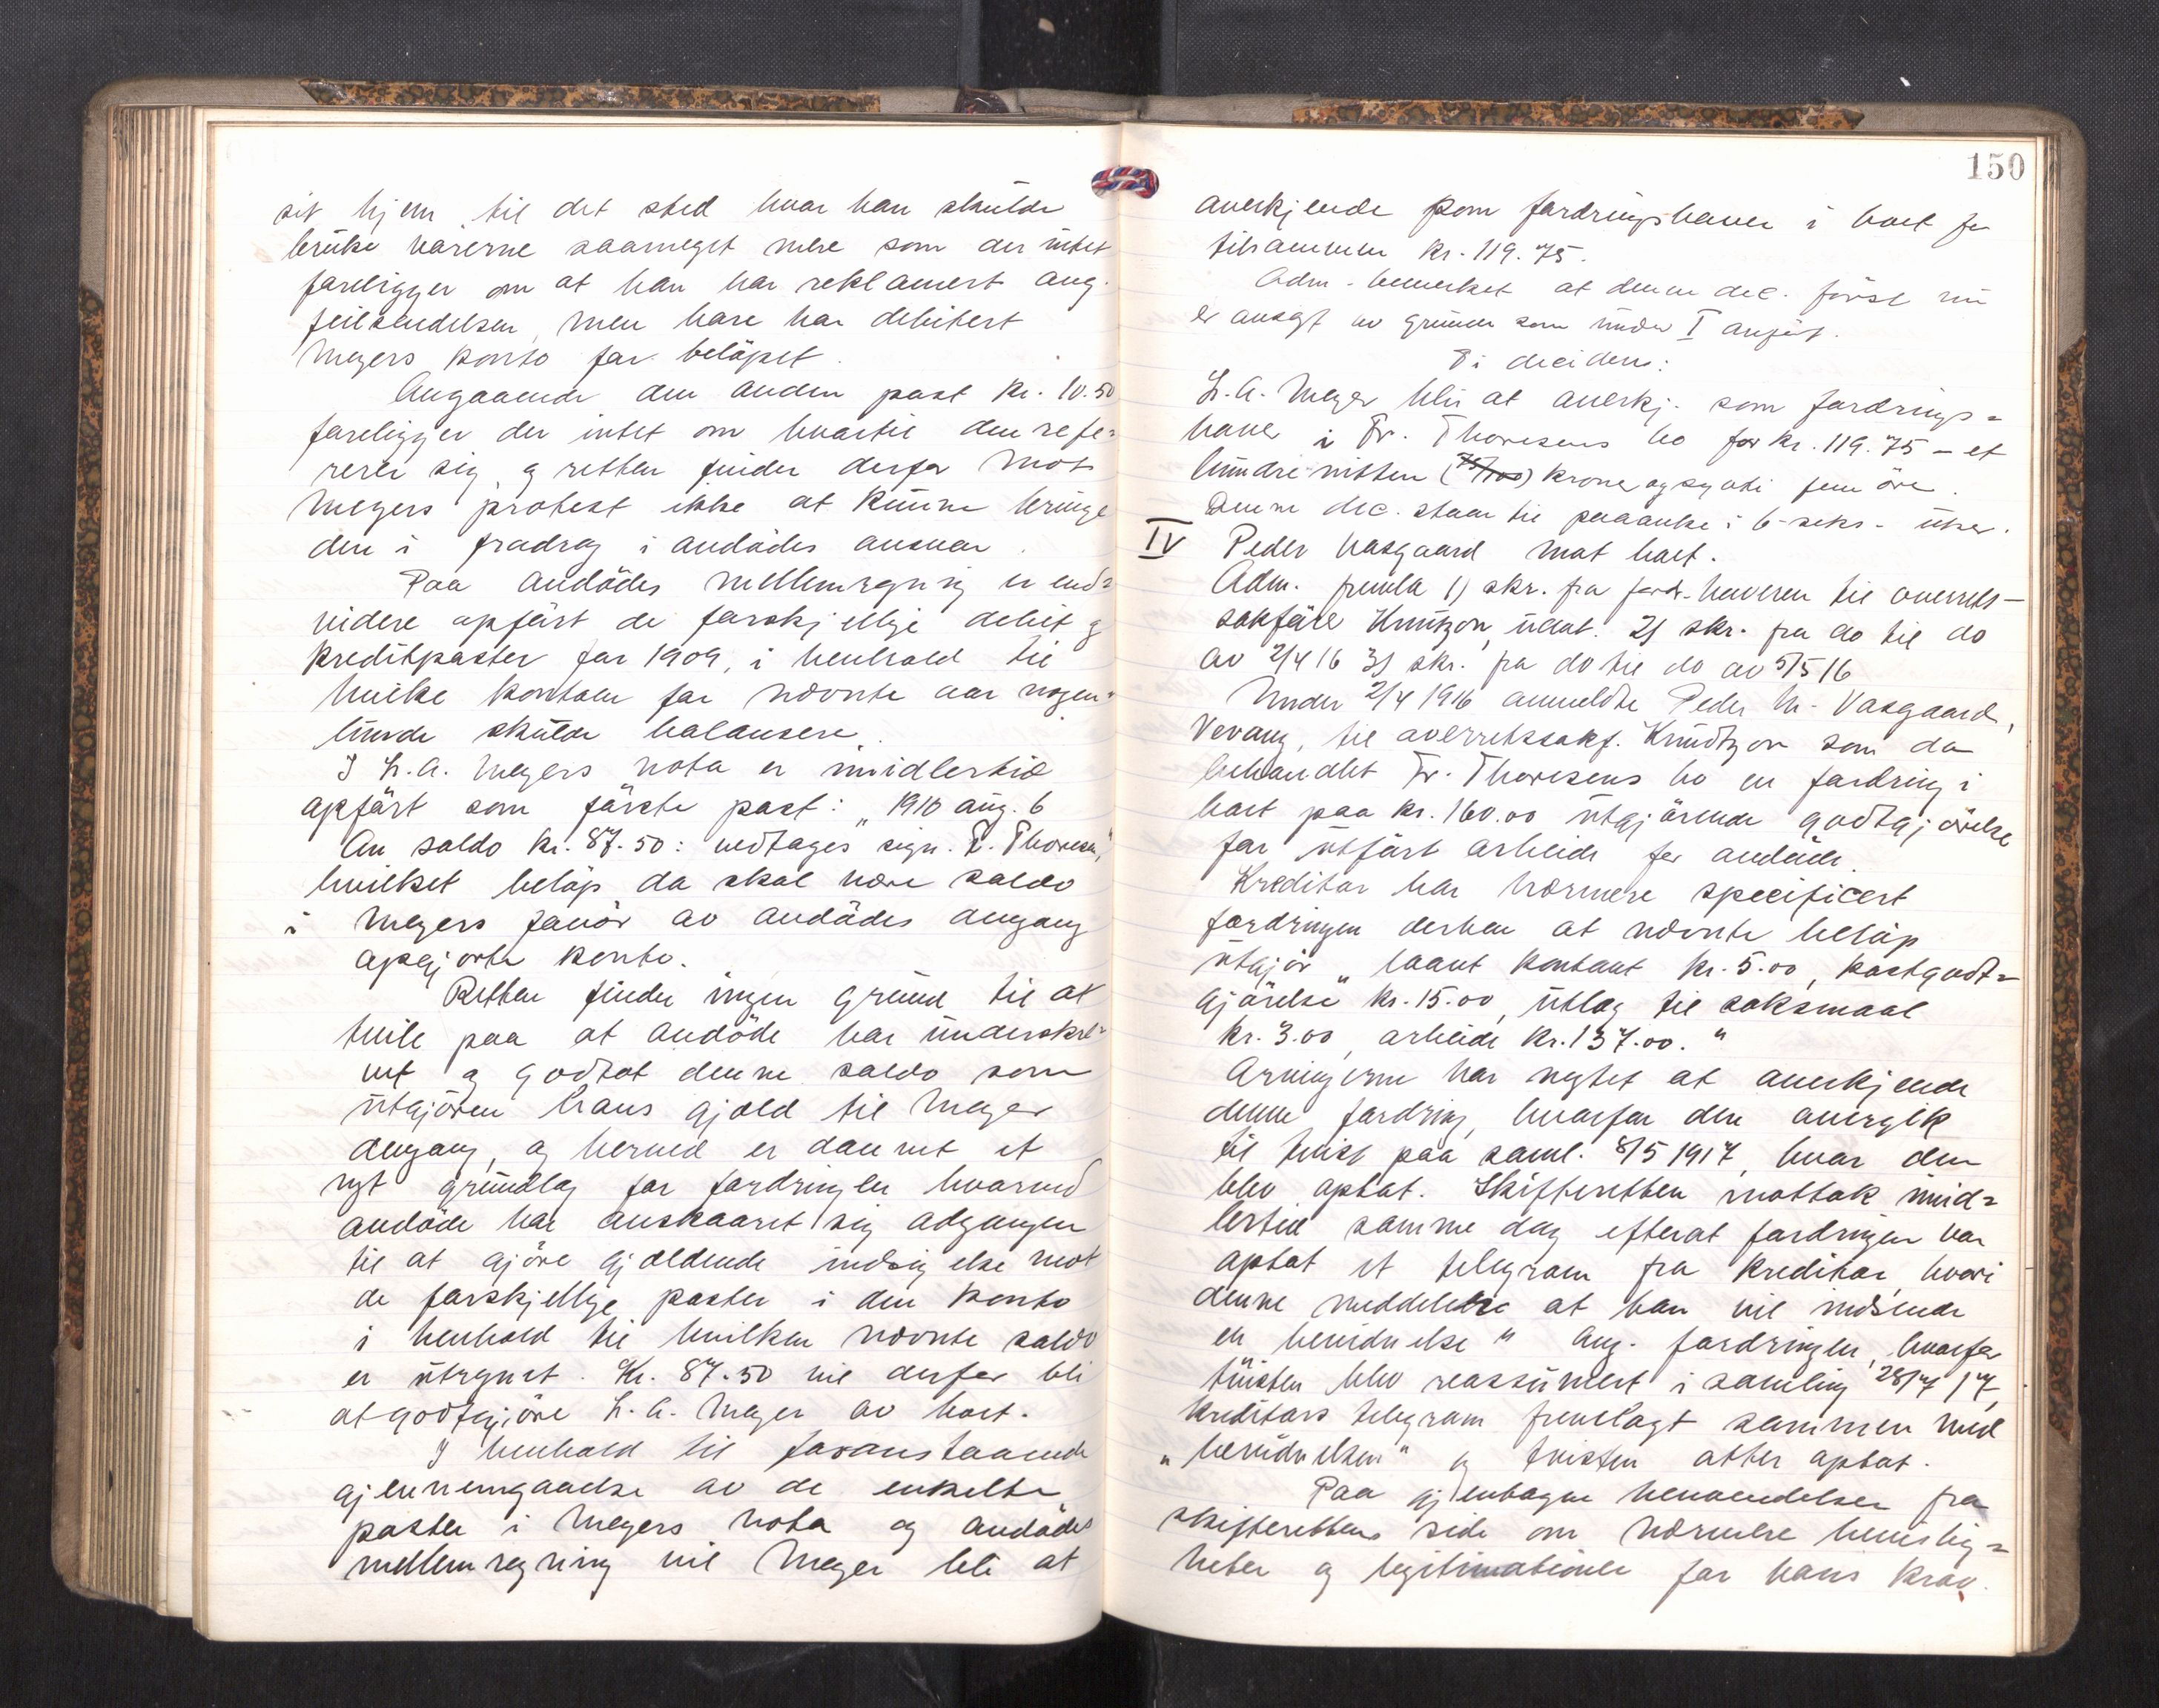 sit hjem til det sted hvor han skulde
bruke varerne saameget mere som der intet
foreligger om at han har reklamert ang.
feilsendelsen, men bare har debitert
Meyers konto for beløpet.
Angaaende den anden post kr. 10.50
foreligger der intet om hvortil den refe=
rerer sig, og retten finder derfor mot
Meyers protest ikke at kunne bringe
den i fradrag i avdødes ansvar.
Paa avdødes mellemregning er end=
videre opført de forskjellige debet og
kreditposter for 1909, i henhold til
hvilke kontoen for nævnte aar nogen=
lunde skulde balansere.
I L.A. Meyers nota er imidlertid
opført som første post: "1910 aug. 6
An saldo kr. 87.50: vedtages sign. Fr. Thoresen,"
hvilket beløp da skal være saldo
i Meyers favør av avdødes dengang
opgjorte konto.
Retten finder ingen grund til at
tvile paa at avdøde har underskre=
vet og godtat denne saldo som
utgjøren hans gjæld til Meyer
dengang, og herved er dannet et
nyt grundlag for fordringen hvorved
avdøde har avskaaret sig adgangen
til at gjøre gjældende indsigelse mot
de forskjellige poster i den konto
i henhold til hvilken nævnte saldo
er utregnet. Kr. 87.50 vil derfor bli
at godtgjøre L.A. Meyer av boet.
I henhold til foranstaaende
gjennemgaaelse av de enkelte
poster i Meyers nota og avdødes
mellemregning vil Meyer bli at
150
anerkjende som fordringshaver i boet for
tilsammen kr. 119.75.
Adm. bemerket at denne dec. først nu
er avsagt av grunde som under I anført.
Ti decideres:
L.A. Meyer blir at anerkj. som fordrings=
haver i Fr. Thoresens bo for kr. 119.75 - et
hundre nitten (75/100) kroner og sytti fem øre.
Denne dec. staar til paaanke i 6-seks- uker.
IV Peder Vasgaard mot boet.
Adm. fremla 1) skr. fra fordr.haveren til overrets-
sakfører Knutzon, udat. 2) skr. fra do til do
av 2/4 16 3) skr. fra do til do av 5/5 16
Under 2/4 1916 anmeldte Peder M. Vasgaard,
Vevang, til overretssakf. Knudtzon som da
behandlet Fr. Thoresens bo en fordring i
boet paa kr. 160.00 utgjørende godtgjørelse
for utført arbeide for avdøde.
Kreditor har nærmere specificert
fordringen derhen at nævnte beløp
utgjør "laant kontant kr. 5.00, kostgodt=
gjørelse" kr. 15.00, utlæg til søksmaal
kr. 3.00, arbeide kr. 137.00."
Arvingerne har negtet at anerkjende
denne fordring, hvorfor den overgik
til tvist paa saml. 8/5 1917, hvor den
blev optat. Skifteretten mottok imid=
lertid samme dag efterat fordringen var
optat et telegram fra kreditor, hvori
denne meddelte at han vil indsende
en bevidnelse" ang. fordringen, hvorfor
tvisten blev reassumert i samling 28/7 17,
kreditors telegram fremlagt sammen med
"bevidnelsen" og tvisten atter optat.
Paa gjentagne henvendelser fra
skifterettens side om nærmere bevislig=
heter og legitimationer for hans krav